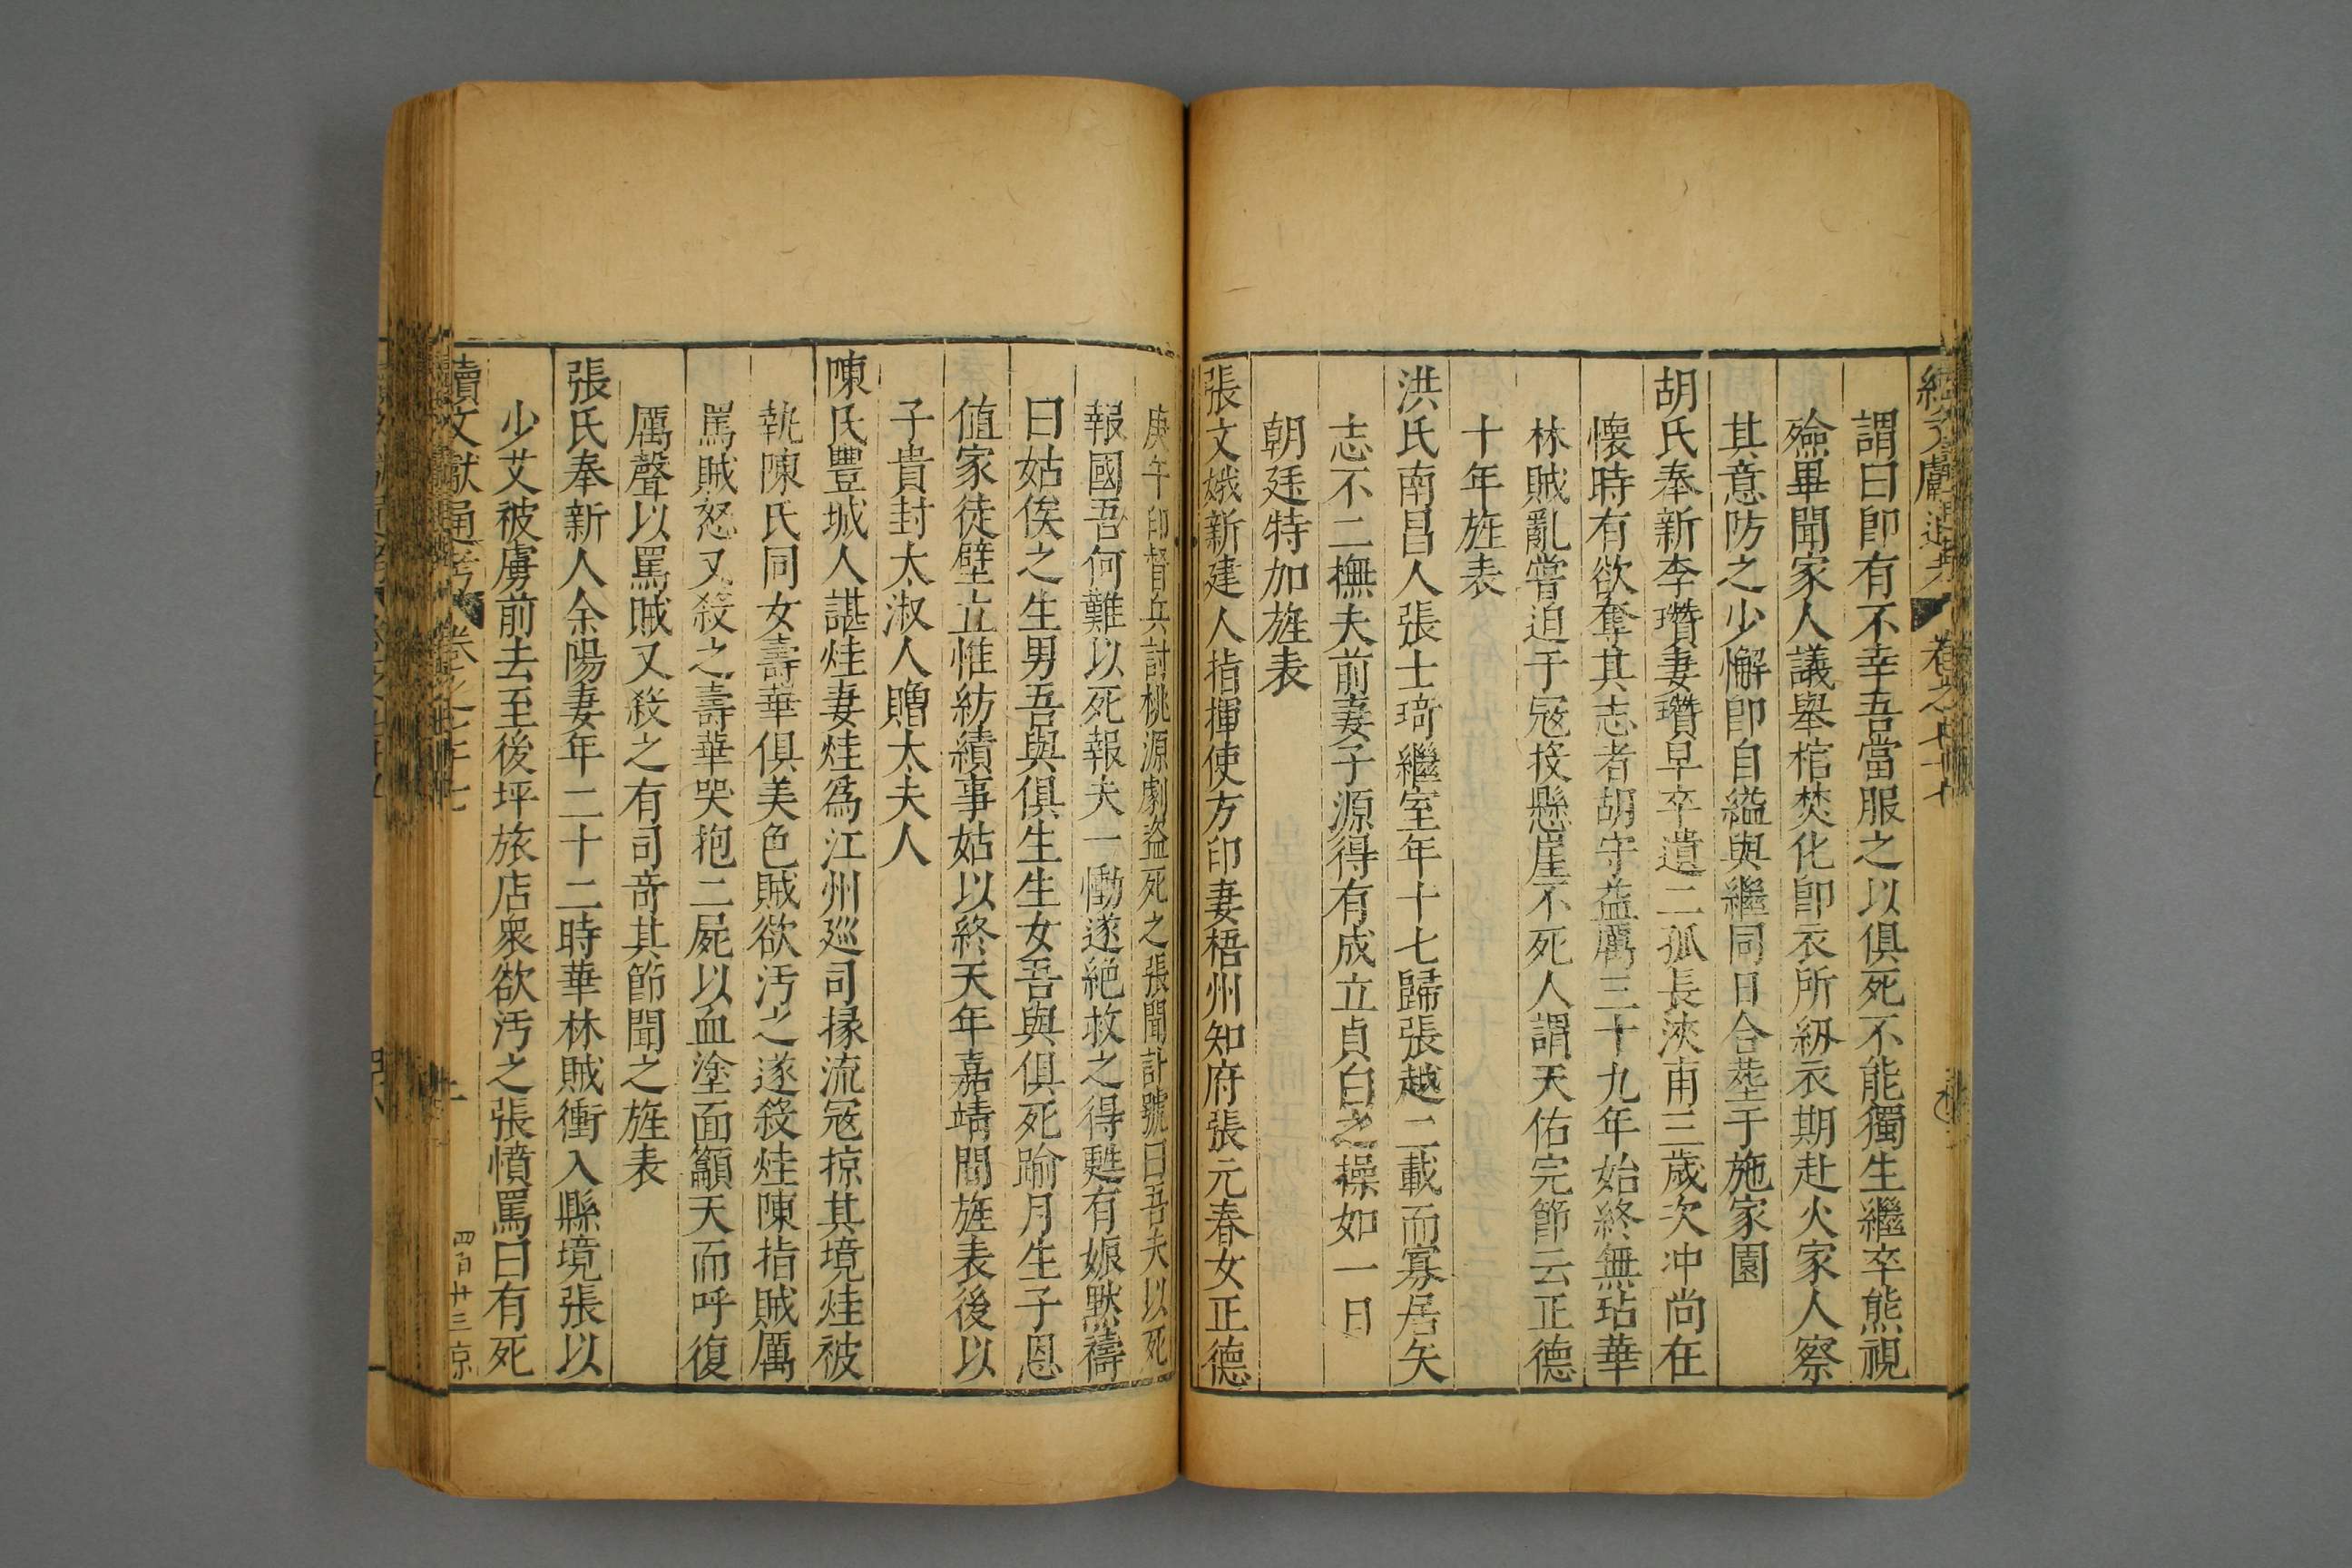 謂曰卽有不幸吾當服之以俱死不能獨生繼卒熊視
殮畢聞家人議舉棺焚化卽衣所紉衣期赴火家人察
其意防之少懈卽自縊與繼同日合塟于施家園
胡氏奉新李瓚妻瓚早卒遺二孤長浹甫三歲次冲尚在
懷時有欲奪其志者胡守益厲三十九年始終無玷華
林賊亂嘗迫于冦投懸崖不死人謂天佑完節云正德
十年旌表
洪氏南昌人張士琦繼室年十七歸張越二載而寡居矢
志不二撫夫前妻子源得有成立貞白之操如一日
朝廷特加旌表
張文娥新建人指揮使方印妻梧州知府張元春女正德
庚午印督兵討桃源劇盗死之張聞訃號曰吾夫以死
報國吾何難以死報夫一慟遂絶救之得甦有娠默禱
曰姑俟之生男吾與俱生生女吾與俱死踰月生子恩
値家徒壁立惟紡績事姑以終天年嘉靖間旌表後以
子貴封太淑人贈太夫人
陳氏豐城人諶烓妻烓爲江州廵司掾流冦掠其境烓被
執陳氏同女壽華俱美色賊欲汚之遂殺烓陳指賊厲
罵賊怒又殺之壽華哭抱二屍以血塗面籲天而呼復
厲聲以罵賊又殺之有司竒其節聞之旌表
張氏奉新人余陽妻年二十二時華林賊衝入縣境張以
少艾被虜前去至後坪旅店衆欲汚之張憤罵曰有死
續文獻通考 卷之七十七
四百廿三 京